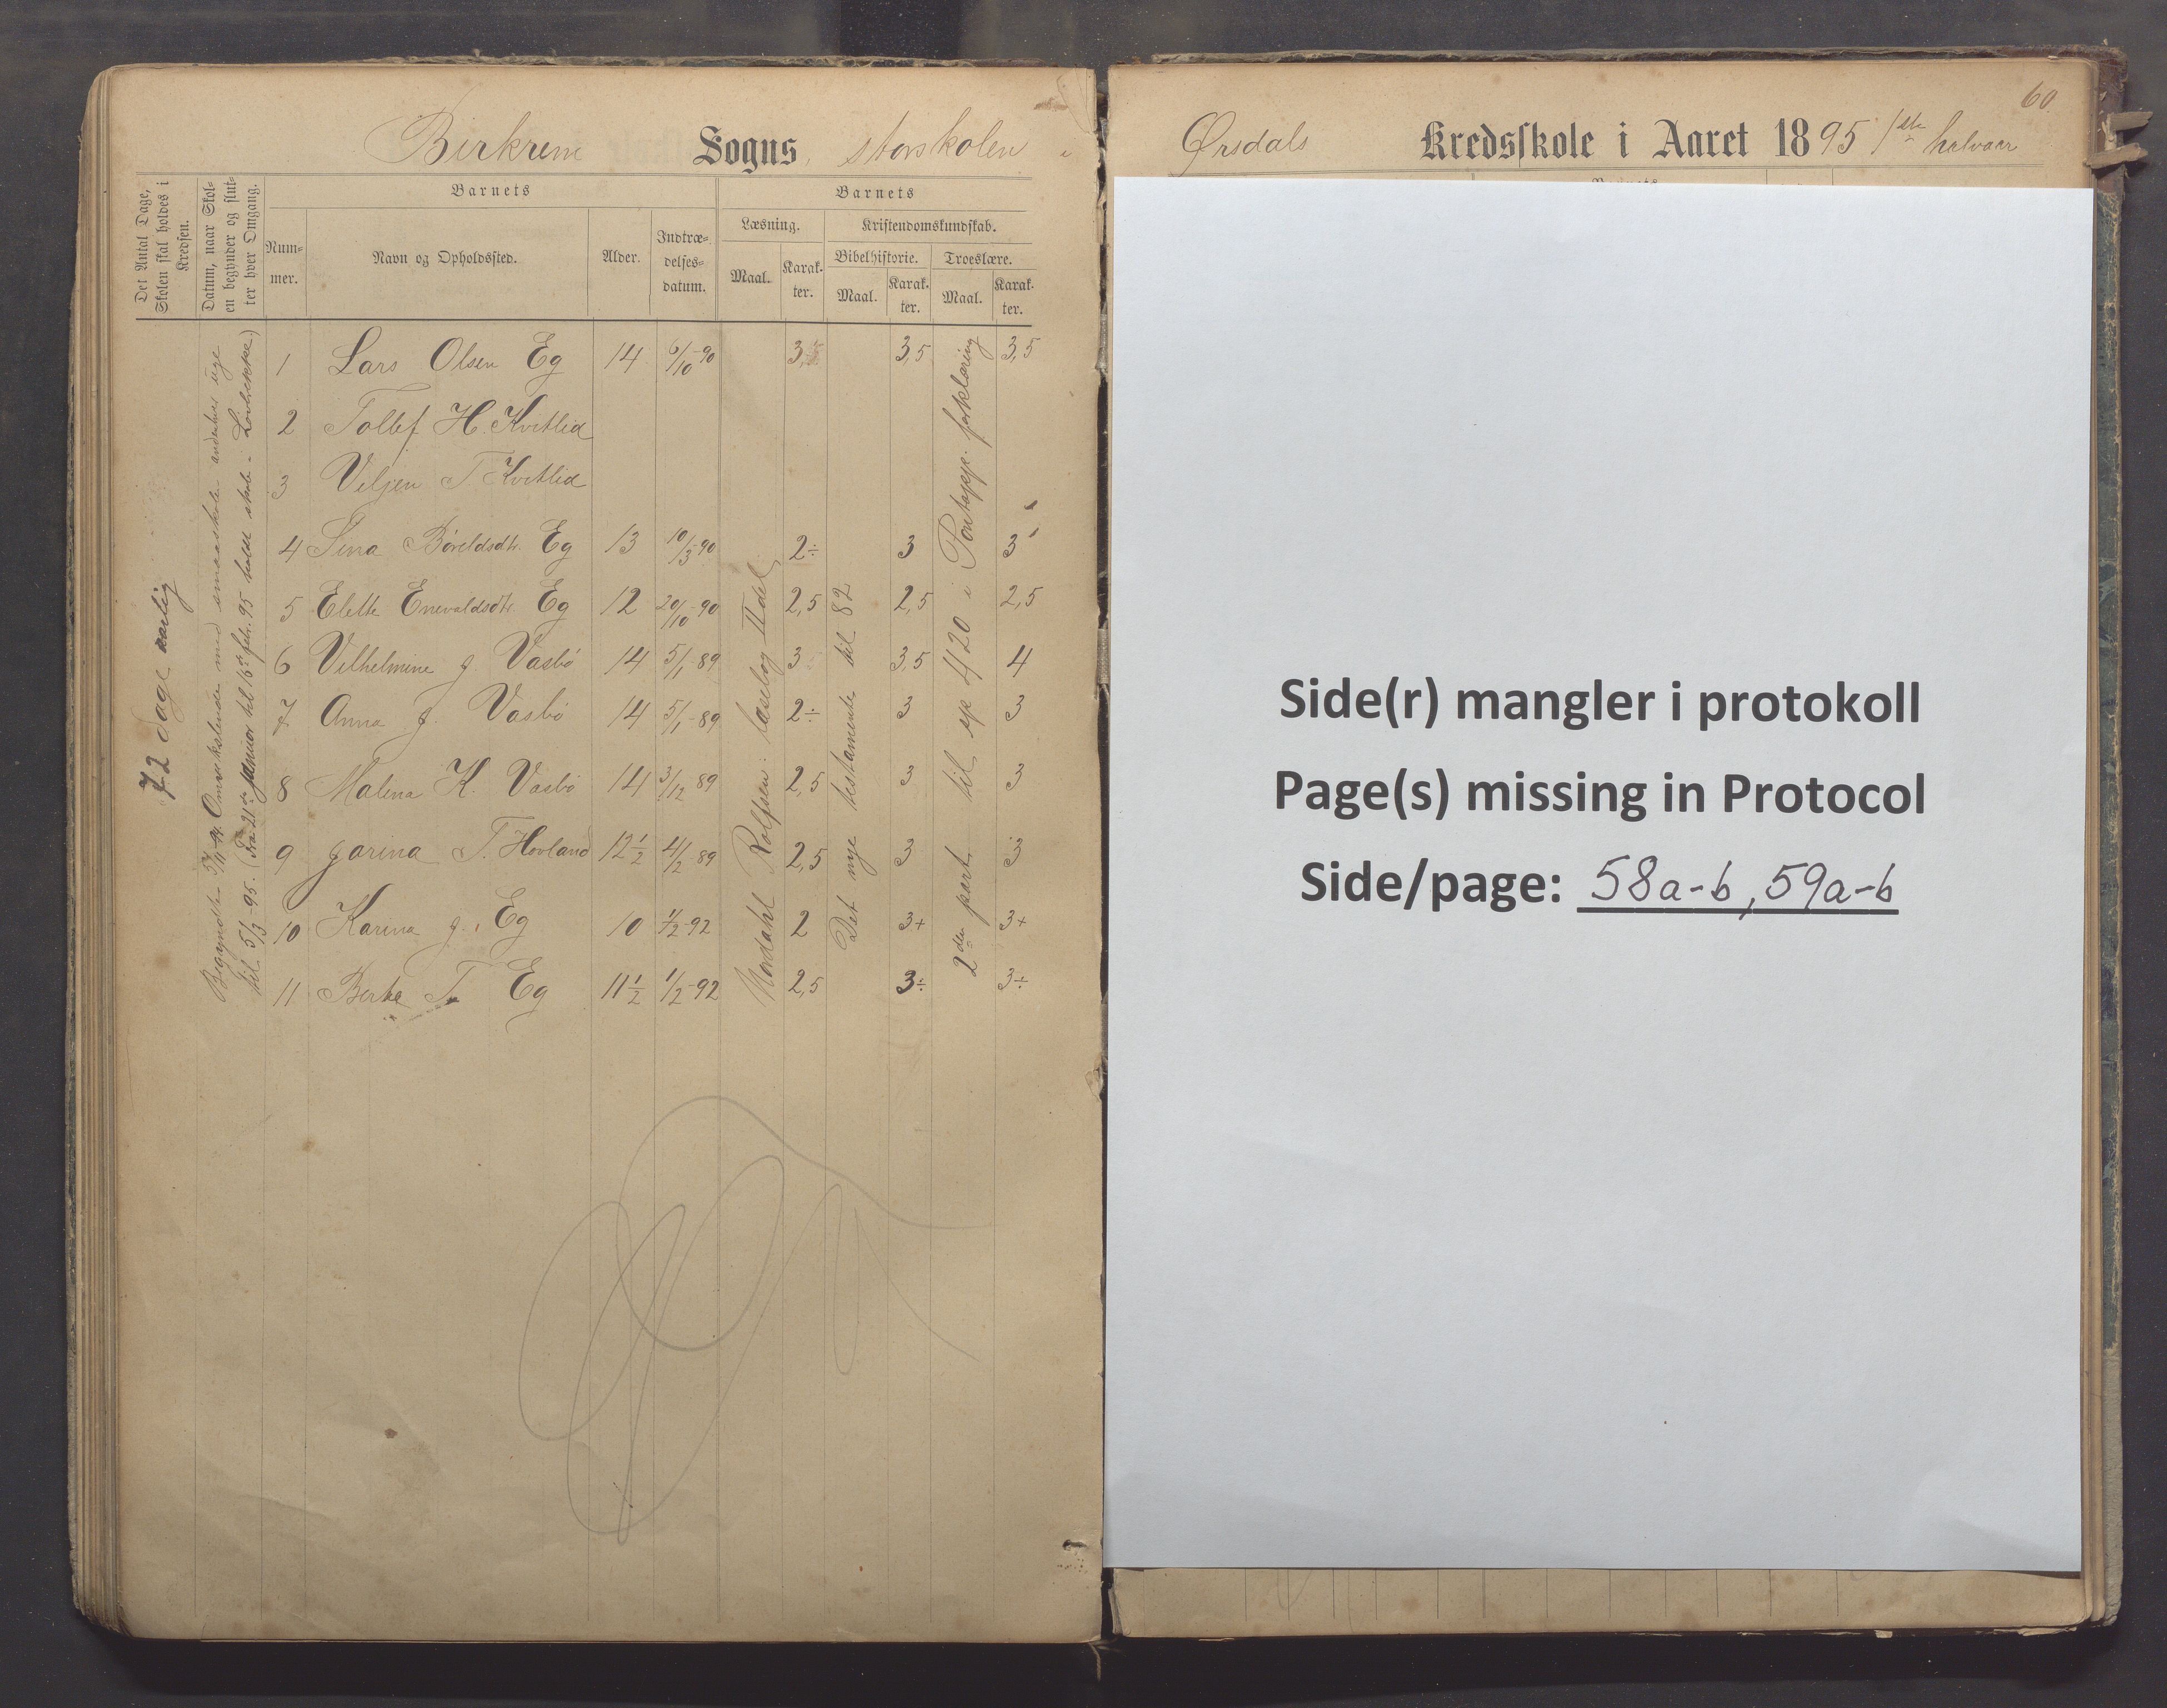 Birkrem Sogns storskolen i
Det Antal Dage, Skolen skal holdes i Kredsen.
Datum, naar Skolen begynder og slutter hver Omgang.
Barnets
Nummer.
Navn og Opholdssted.
Alder.
Indtrædelsesdatum.
Barnets
Læsning.
Maal.
Karakter.
Kristendomskundskab.
Bibelhistorie.
Maal.
Karakter.
Troeslære.
Maal.
Karakter.
72 dage aarlig
til 5/3-95. (Fra 21de januar til 16de febr. 95 holdt skole
Nordahl Rolfsen: læsebog II del
Det nye testamente til 82
2den part til sp 420 i Pontopp. forklaring
1 Lars Olsen Eg 14 6/10-90 3, 3,5 3,5
2 Tollef H. Kvitlid
3 Veljen T Kvitlid
4 Sina Eg 13 10/3-90 2÷ 3 3
5 Elette Enevaldsdtr. Eg 12 20/10-90 2,5 2,5 2,5
6 Vilhelmine J. Vasbö 14 5/1-89 3 3,5 4
7 Anna J. Vasbö 14 5/1-89 2÷ 3 3
8 Malena K. Vasbö 14 3/12 89 2,5 3 3
9 Jorina T. Hovland 12½ 4/2-89 2,5 3 3
10 Karina J. Eg 10 1/2-92 2 3+ 3+
11 Berta T Eg 11½ 1/2-92 2,5 3÷ 3÷
60
Ørsdals Kredsskole i Aaret 1895 1ste halvaar
Side(r) mangler i protokoll
Page(s) missing in Protocol
Side/page: 58a-b, 59a-b